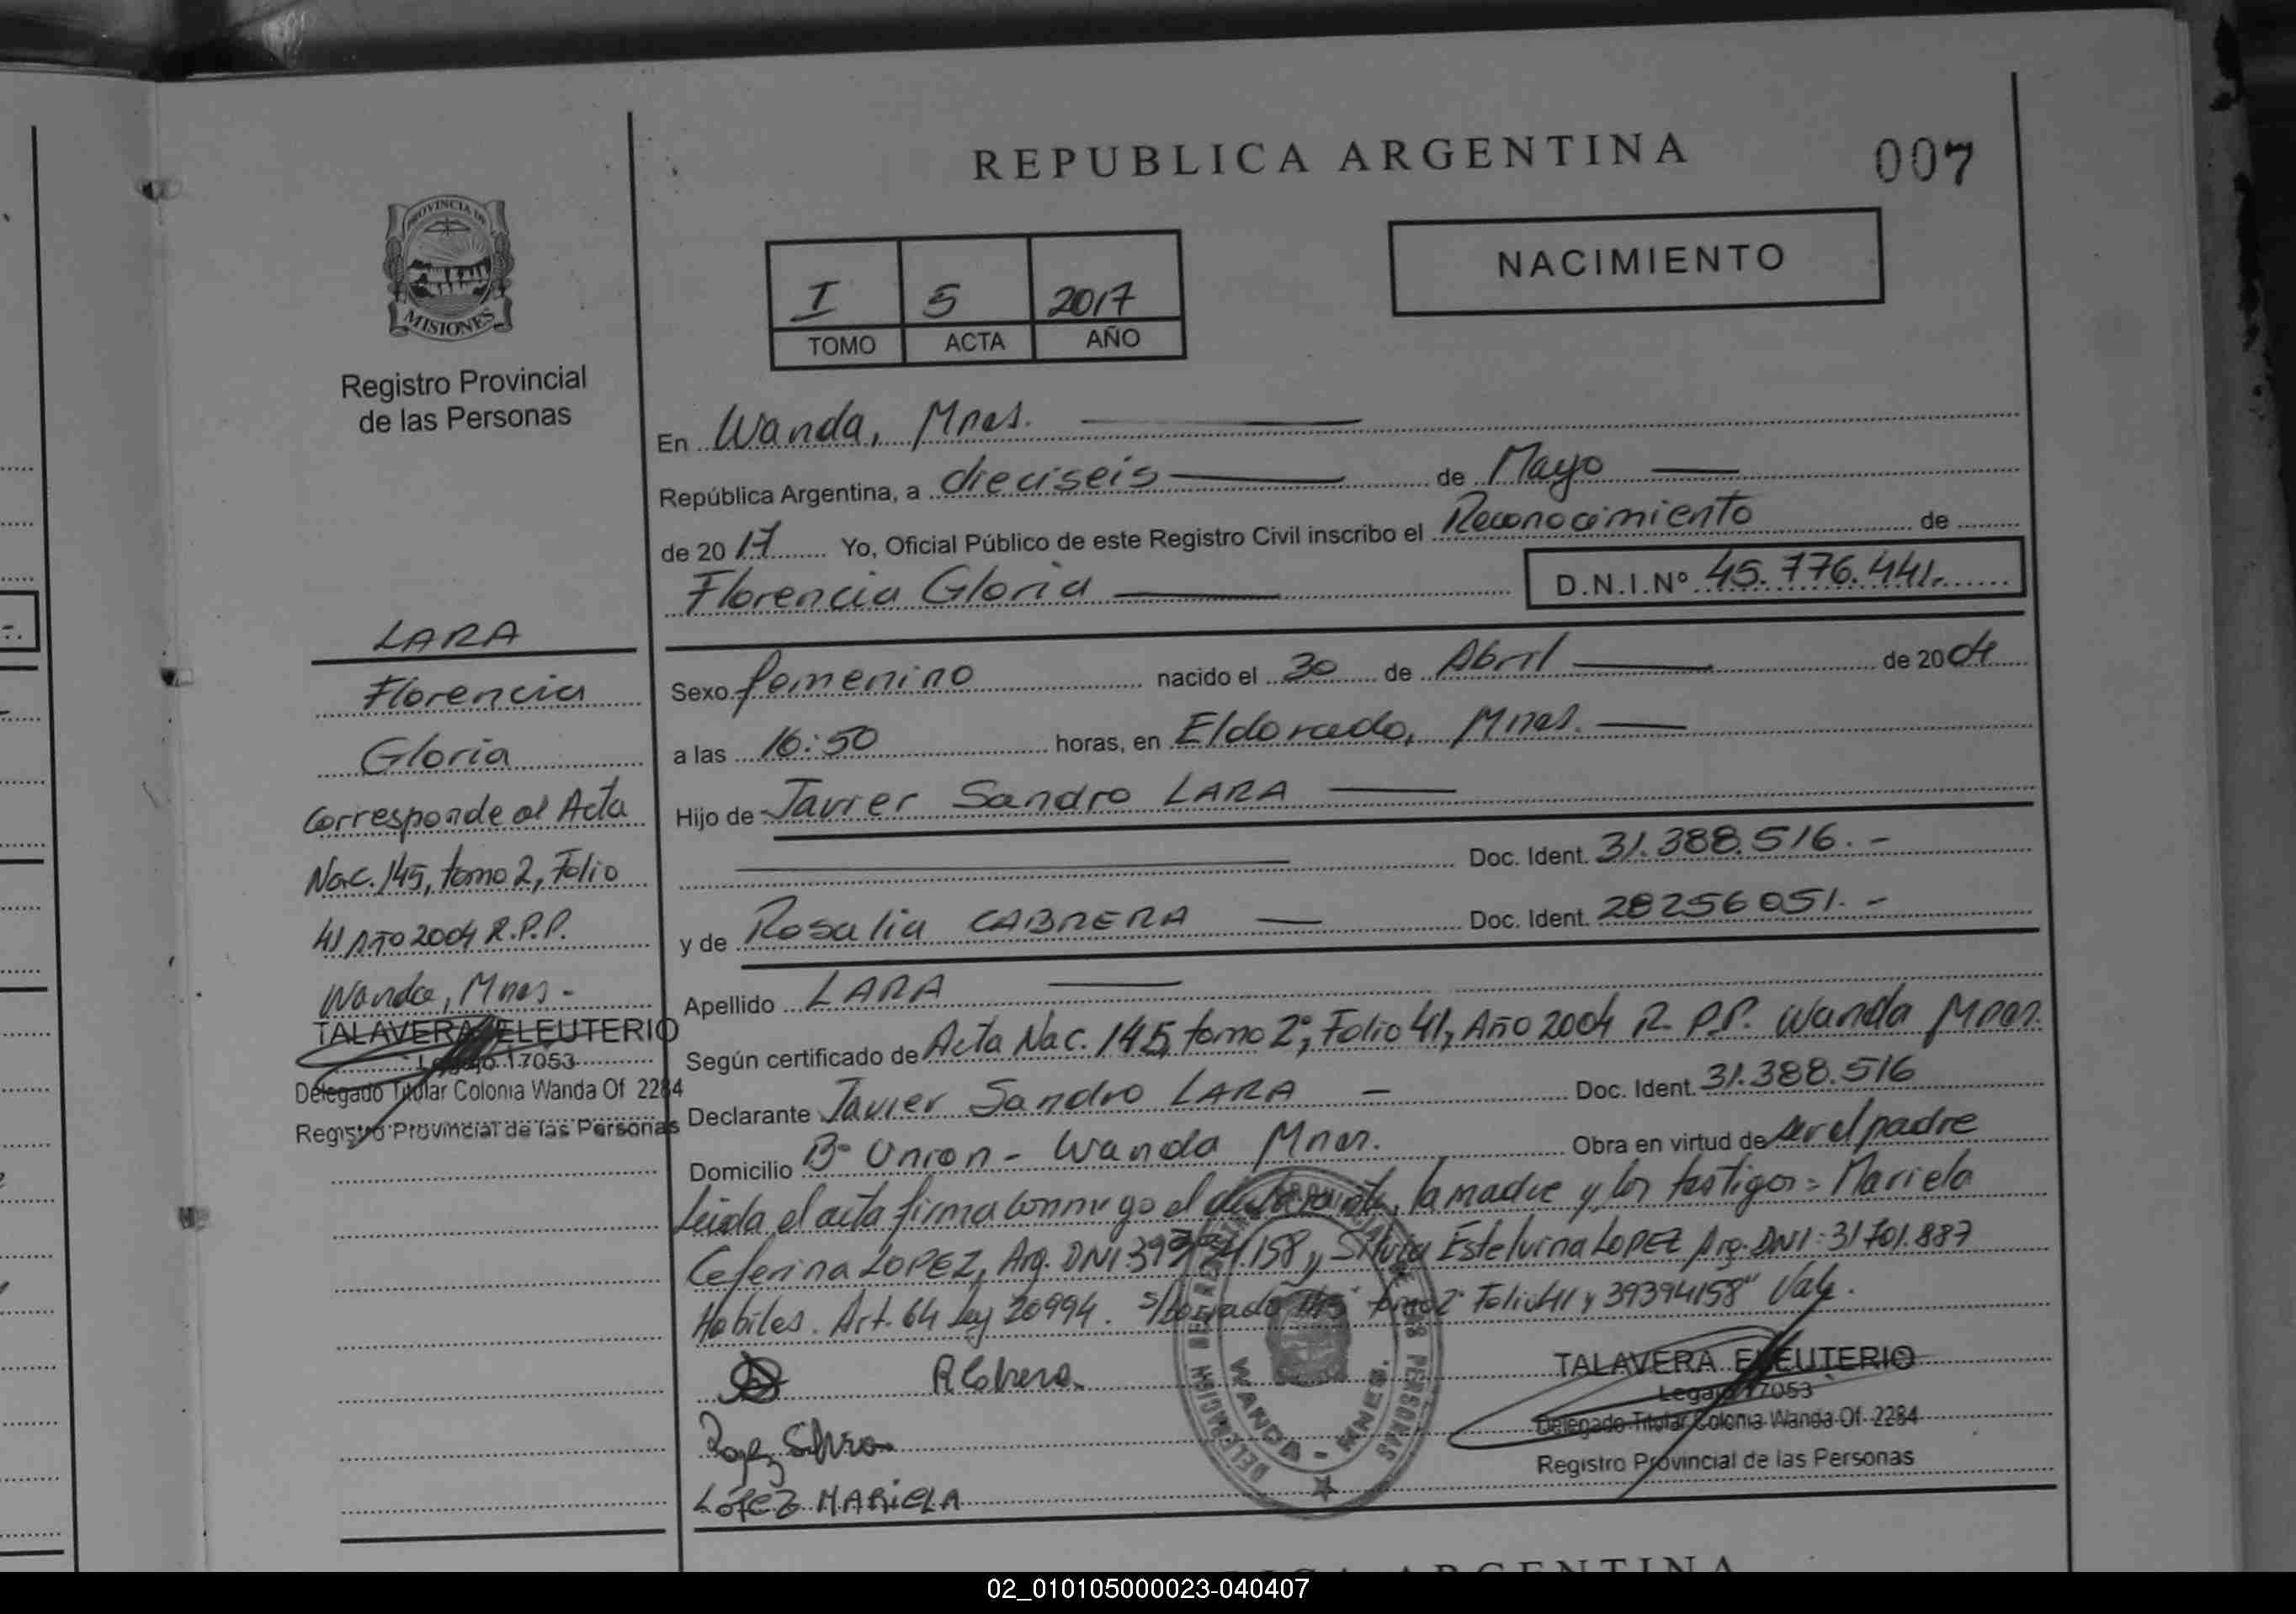 REPUBLICA ARGENTINA
007
PROVINCIA DE
MISIONES
Registro Provincial
de las Personas
I 5 2017
TOMO ACTA AÑO
NACIMIENTO
En Wanda, Mnes.
República Argentina, a dieciseis de Mayo
de 20 17 Yo, Oficial Público de este Registro Civil inscribo el Reconocimiento de
Florencia Gloria D.N.I.Nº 45.776.441.
LARA
Florencia
Gloria
Corresponde al Acta
Nac. 145, tomo 2, Folio
41 Año 2004 R.P.P.
Wanda, Mnes.-
TALAVERA ELEUTERIO
Legajo 17053
Delegado Titular Colonia Wanda Of 2284
Registro Provincial de las Personas
Sexo femenino nacido el 30 de Abril de 2004
a las 16:50 horas, en Eldorado, Mnes.
Hijo de Javier Sandro LARA
Doc. Ident. 31.388.516.-
y de Rosalia CABRERA Doc. Ident. 28256051.-
Apellido LARA
Según certificado de Acta Nac. 145, tomo 2º, Folio 41, Año 2004 R.P.P. Wanda Mnes.
Declarante Javier Sandro LARA - Doc. Ident. 31.388.516
Domicilio Bº Union - Wanda Mnes. Obra en virtud de ser el padre
Leida el acta firma conmigo el declarante, la madre y los testigos: Mariela
Ceferina LOPEZ, Arg. DNI 39394158 y Silvia Estelvina LOPEZ Arg. DNI: 31701.887
Habiles. Art. 64 Ley 20994. S/borrado "145 tomo 2º Folio 41 y 39394158" Vale.
RCabrera
Lopez Silvia
LÓPEZ MARIELA
DELEGACION DE REGISTRO PROVINCIAL DE LAS PERSONAS
WANDA - MNES.
TALAVERA ELEUTERIO
Legajo 17053
Delegado Titular Colonia Wanda Of. 2284
Registro Provincial de las Personas
02_010105000023-040407